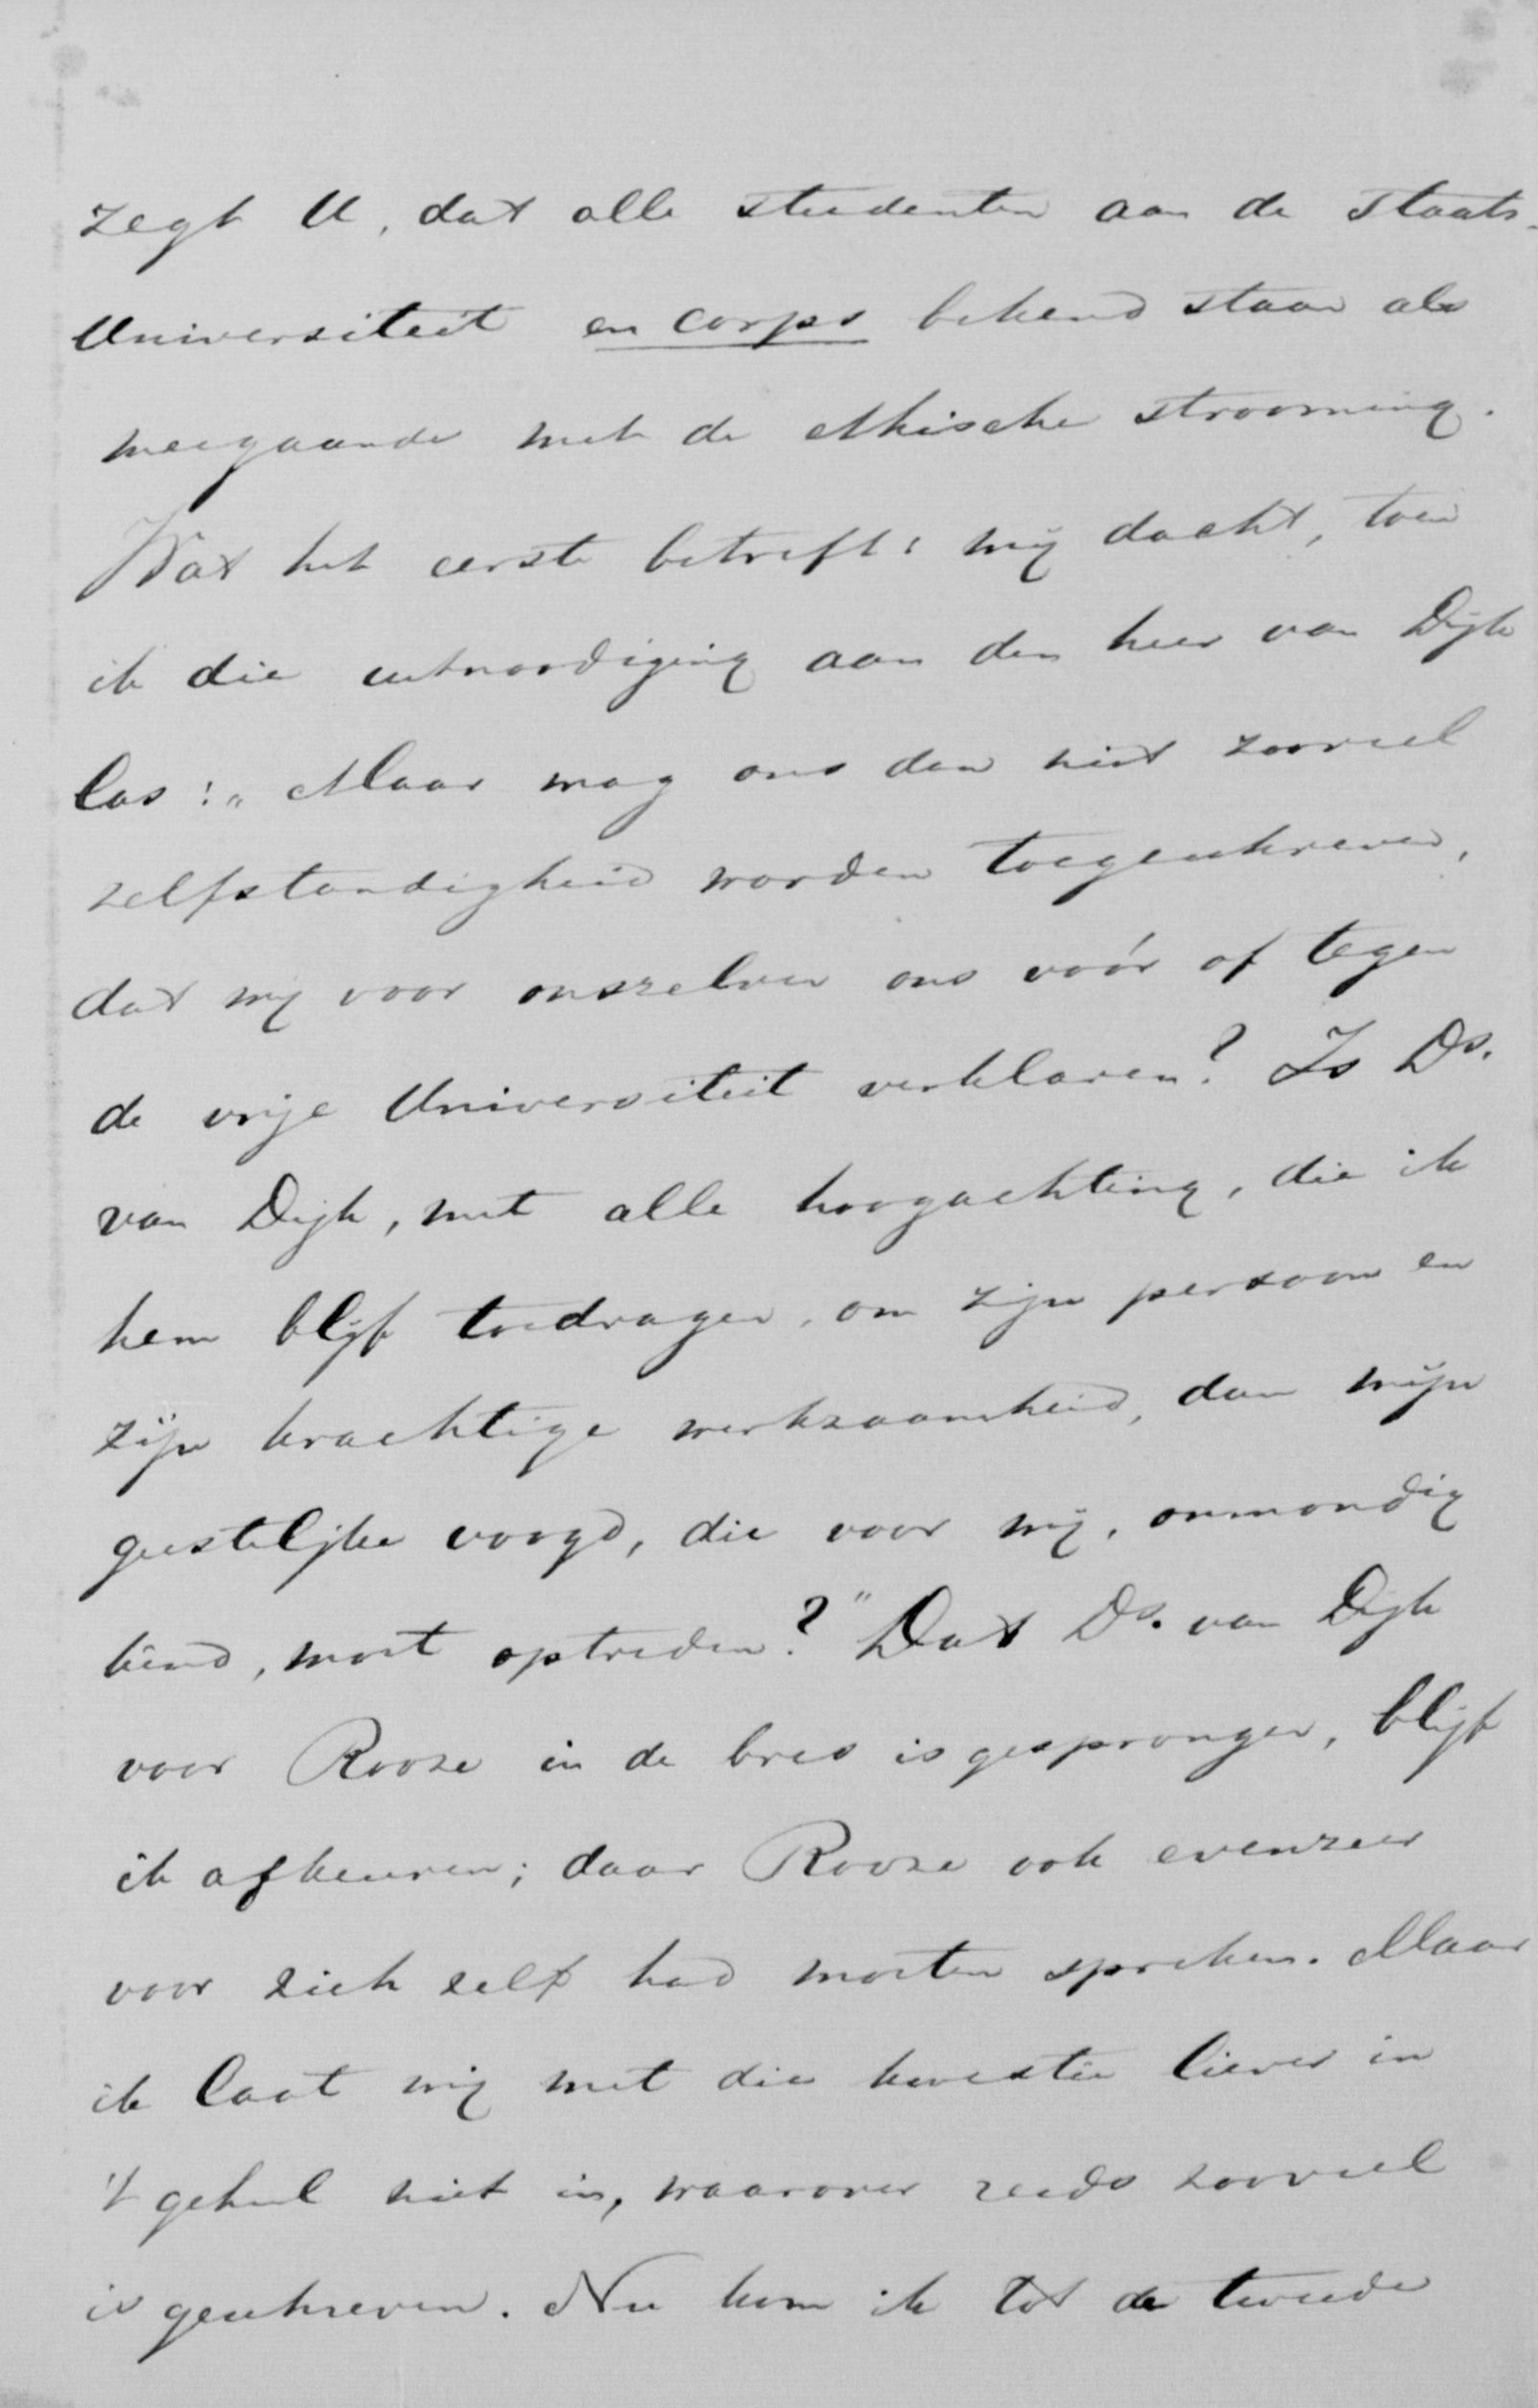 zegt U, dat alle studenten aan de Staats-
Universiteit en corps bekend staan als
meegaande met de ethische strooming.
Wat het eerste betreft: mij dacht, toen
ik die uitnoodiging aan den heer van Dijk
las: „Maar mag ons dan niet zooveel
zelfstandigheid worden toegeschreven,
dat wij voor onszelven ons vóór of tegen
de vrije Universiteit verklaren? Is Ds.
van Dijk, met alle hoogachting, die ik
hem blijf toedragen, om zijn persoon en
zijn krachtige werkzaamheid, dan mijn
geestelijke voogd, die voor mij, onmondig
kind, moet optreden?" Dat Ds. van Dijk
voor Rooze in de bres is gesprongen, blijf
ik afkeuren; daar Rooze ook evenzeer
voor zich zelf had moeten spreken. Maar
ik laat mij met die kwestie liever in
't geheel niet in, waarover reeds zooveel
is geschreven. Nu kom ik tot de tweede